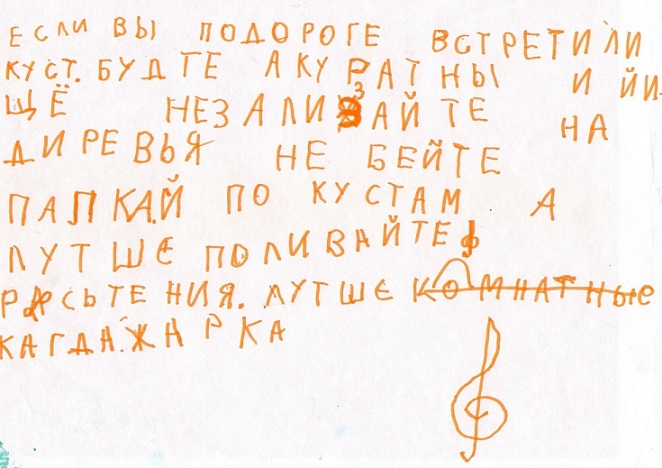 ЕСЛИ ВЫ ПОДОРОГЕ ВСТРЕТИЛИ
КУСТ. БУДТЕ АКУРАТНЫ И ЙИ
ЩЁ НЕЗАЛИЗАЙТЕ НА
ДИРЕВЬЯ НЕ БЕЙТЕ
ПАПКАЙ ПО КУСТАМ А
ЛУТШЕ ПОЛИВАЙТЕ
РАСЬТЕНИЯ. ЛУТШЕ КОМНАТНЫЕ
КАГДА. ЖАРКА